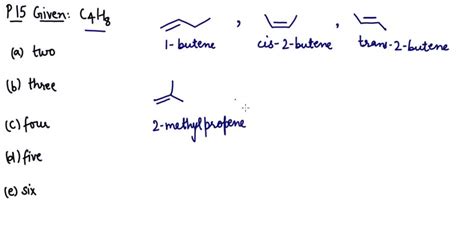 P15 Given: C4H8
(a) two
1-butene , cis-2-butene , trans-2-butene
(b) three
(c) four
2-methylpropene
(d) five
(e) six